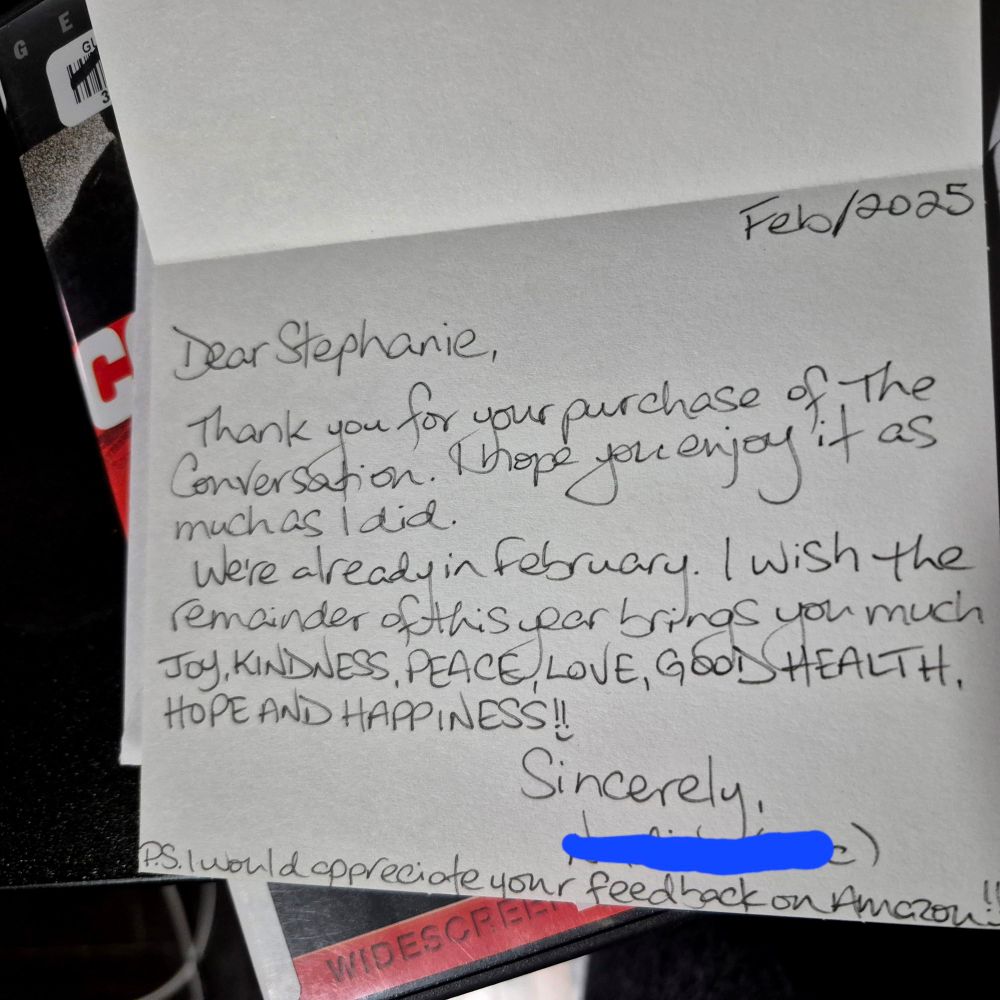 G E
GL
3
C
Feb/2025
Dear Stephanie,
Thank you for your purchase of The
Conversation. I hope you enjoy it as
much as I did.
We're already in February. I wish the
remainder of this year brings you much
Joy, KINDNESS, PEACE, LOVE, GOOD HEALTH,
HOPE AND HAPPINESS!!
Sincerely,
P.S. I would appreciate your feedback on Amazon!!
WIDESCREEN